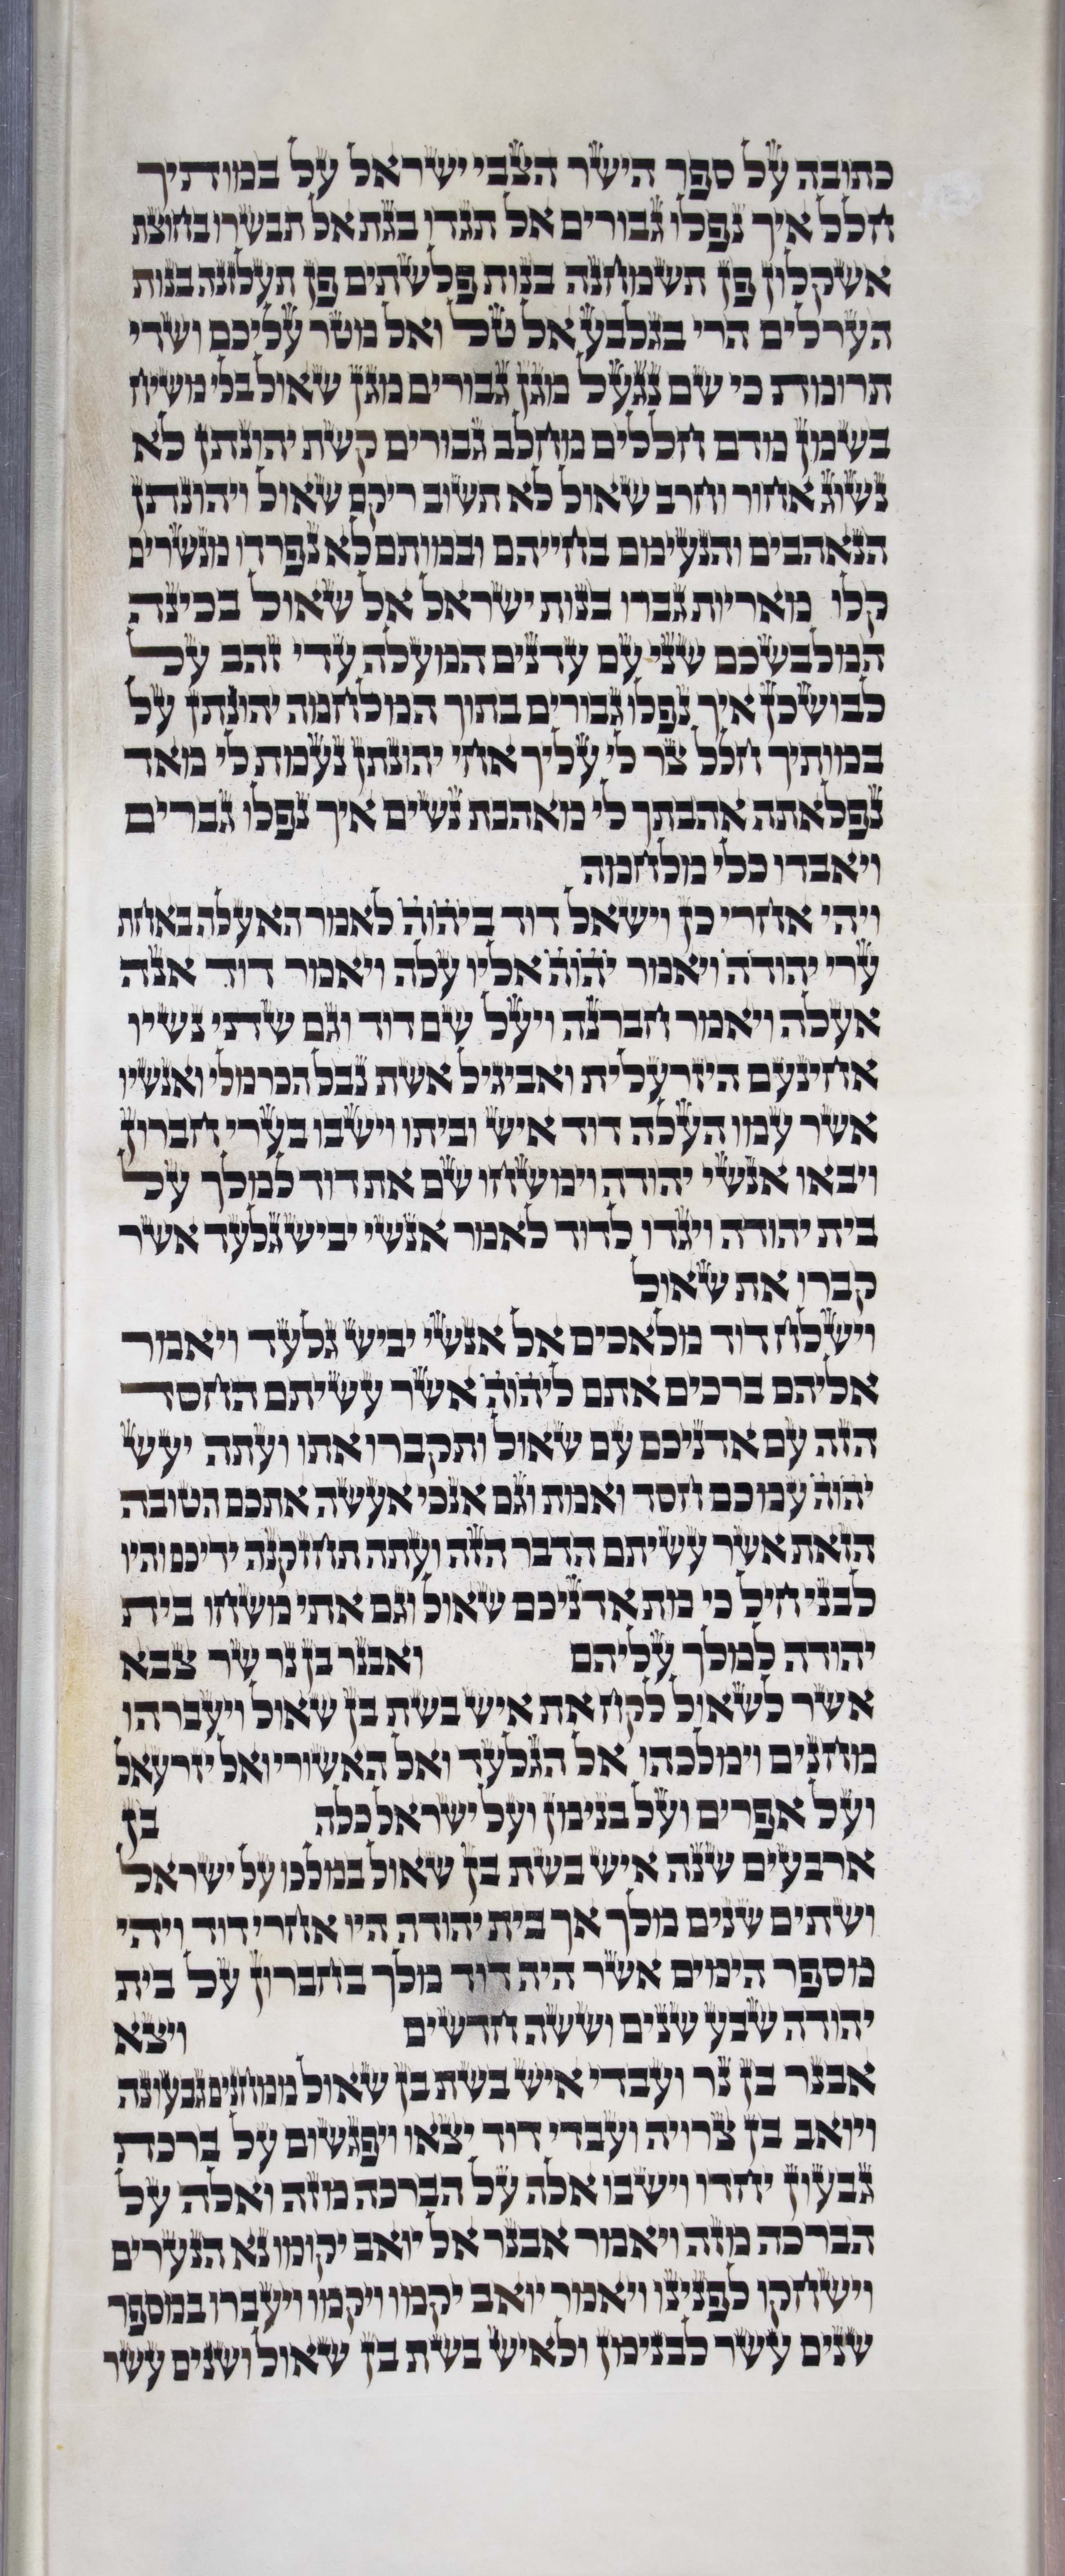 כתובה על ספר הישר הצבי ישראל על במותיך
חלל איך נפלו גבורים אל תגדו בגת אל תבשרו בחוצת
אשקלון פן תשמחנה בנות פלשתים פן תעלזנה בנות
הערלים הרי בגלבע אל טל ואל מטר עליכם ושדי
תרומת כי שם נגעל מגן גבורים מגן שאול בלי משיח
בשמן מדם חללים מחלב גבורים קשת יהונתן לא
נשוג אחור וחרב שאול לא תשוב ריקם שאול ויהונתן
הנאהבים והנעימם בחייהם ובמותם לא נפרדו מנשרים
קלו מאריות גברו בנות ישראל אל שאול בכינה
המלבשכם שני עם עדנים המעלה עדי זהב על
לבושכן איך נפלו גבורים בתוך המלחמה יהונתן על
במותיך חלל צר לי עליך אחי יהונתן נעמת לי מאד
נפלאתה אהבתך לי מאהבת נשים איך נפלו גברים
ויאבדו כלי מלחמה
ויהי אחרי כן וישאל דוד ביהוה לאמר האעלה באחת
ערי יהודה ויאמר יהוה אליו עלה ויאמר דוד אנה
אעלה ויאמר חברנה ויעל שם דוד וגם שתי נשיו
אחינעם היזרעלית ואביגיל אשת נבל הכרמלי ואנשיו
אשר עמו העלה דוד איש וביתו וישבו בערי חברון
ויבאו אנשי יהודה וימשחו שם את דוד למלך על
בית יהודה ויגדו לדוד לאמר אנשי יביש גלעד אשר
קברו את שאול
וישלח דוד מלאכים אל אנשי יביש גלעד ויאמר
אליהם ברכים אתם ליהוה אשר עשיתם החסד
הזה עם אדניכם עם שאול ותקברו אתו ועתה יעש
יהוה עמכם חסד ואמת וגם אנכי אעשה אתכם הטובה
הזאת אשר עשיתם הדבר הזה ועתה תחזקנה ידיכם והיו
לבני חיל כי מת אדניכם שאול וגם אתי משחו בית
יהודה למלך עליהם ואבנר בן נר שר צבא
אשר לשאול לקח את איש בשת בן שאול ויעברהו
מחנים וימלכהו אל הגלעד ואל האשורי ואל יזרעאל
ועל אפרים ועל בנימן ועל ישראל כלה בן
ארבעים שנה איש בשת בן שאול במלכו על ישראל
ושתים שנים מלך אך בית יהודה היו אחרי דוד ויהי
מספר הימים אשר היה דוד מלך בחברון על בית
יהודה שבע שנים וששה חדשים ויצא
אבנר בן נר ועבדי איש בשת בן שאול ממחנים גבעונה
ויואב בן צרויה ועבדי דוד יצאו ויפגשום על ברכת
גבעון יחדו וישבו אלה על הברכה מזה ואלה על
הברכה מזה ויאמר אבנר אל יואב יקומו נא הנערים
וישחקו לפנינו ויאמר יואב יקמו ויקמו ויעברו במספר
שנים עשר לבנימן ולאיש בשת בן שאול ושנים עשר